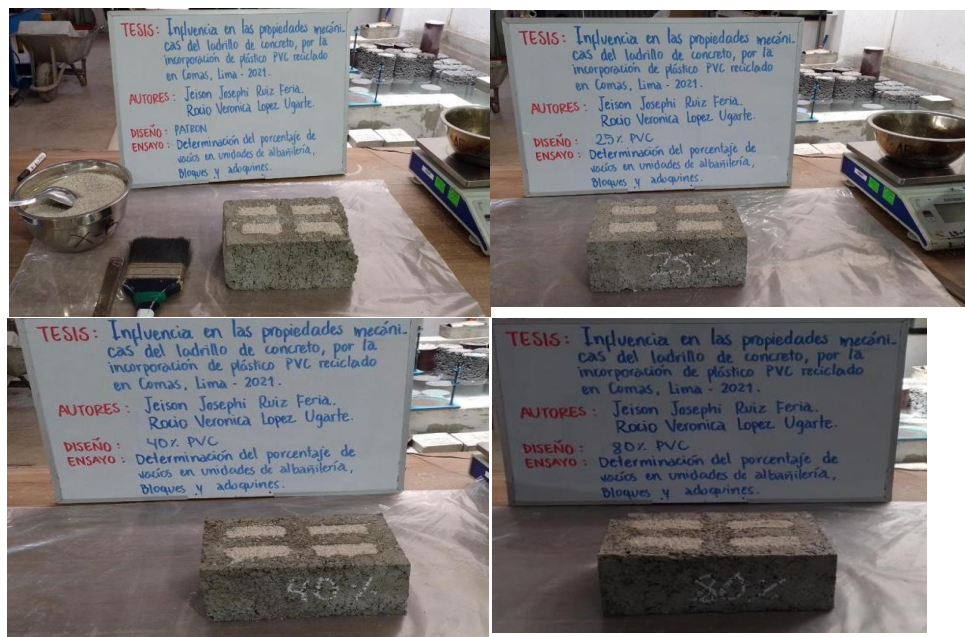 TESIS: Influencia en las propiedades mecáni-
cas del ladrillo de concreto, por la
incorporación de plástico PVC reciclado
en Comas, Lima - 2021.
AUTORES: Jeison Josephi Ruiz Feria.
Rocio Veronica Lopez Ugarte.
DISEÑO: PATRON
ENSAYO: Determinación del porcentaje de
vacíos en unidades de albañilería,
Bloques y adoquines.
TESIS: Influencia en las propiedades mecáni-
cas del ladrillo de concreto, por la
incorporación de plástico PVC reciclado
en Comas, Lima - 2021.
AUTORES: Jeison Josephi Ruiz Feria.
Rocio Veronica Lopez Ugarte.
DISEÑO: 25% PVC
ENSAYO: Determinación del porcentaje de
vacíos en unidades de albañilería,
Bloques y adoquines.
25%
TESIS: Influencia en las propiedades mecáni-
cas del ladrillo de concreto, por la
incorporación de plástico PVC reciclado
en Comas, Lima - 2021.
AUTORES: Jeison Josephi Ruiz Feria.
Rocio Veronica Lopez Ugarte.
DISEÑO: 40% PVC
ENSAYO: Determinación del porcentaje de
vacíos en unidades de albañilería,
Bloques y adoquines.
40%
TESIS: Influencia en las propiedades mecáni-
cas del ladrillo de concreto, por la
incorporación de plástico PVC reciclado
en Comas, Lima - 2021.
AUTORES: Jeison Josephi Ruiz Feria.
Rocio Veronica Lopez Ugarte.
DISEÑO: 80% PVC
ENSAYO: Determinación del porcentaje de
vacíos en unidades de albañilería,
Bloques y adoquines.
80%